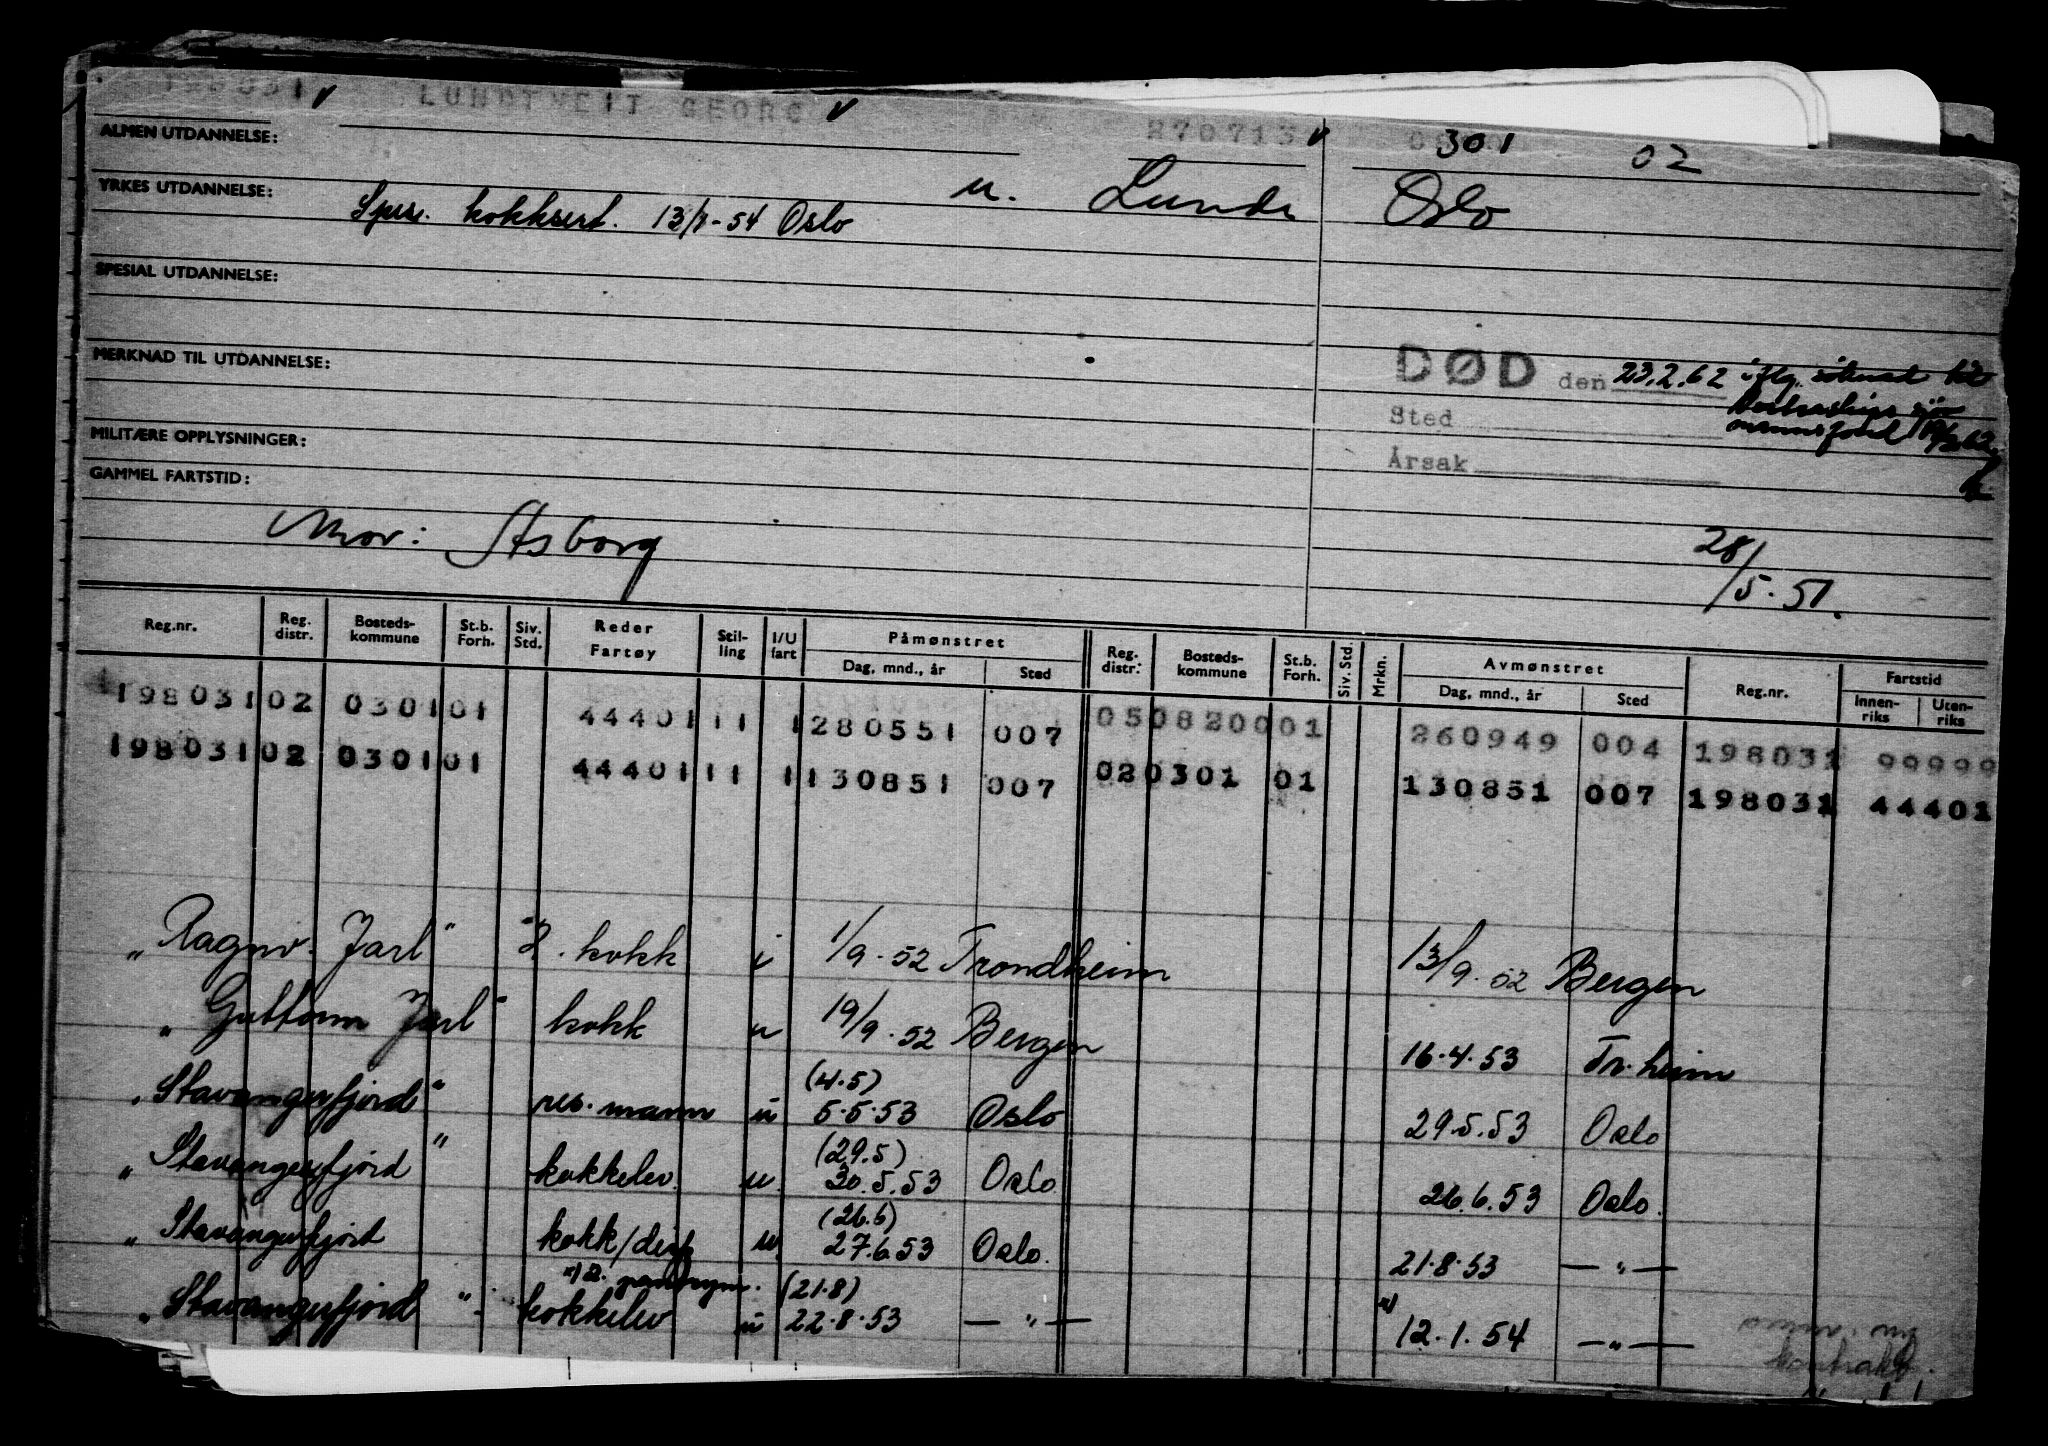 LUNDTVEIT GEORG 270713 301 02
ALMEN UTDANNELSE:
YRKES UTDANNELSE: u. Lunde Oslo
Spes. kokksert. 13/1-54 Oslo
SPESIAL UTDANNELSE:
MERKNAD TIL UTDANNELSE:
DØD den 23.2.62 iflg. søknad til
Sted
mannsfond
MILITÆRE OPPLYSNINGER:
Årsak
GAMMEL FARTSTID:
Mor: Asborg
28/5-51.
Reg.nr. Reg. distr. Bosteds-kommune St.b. Forh. Siv. Std. Reder Fartøy Stil-ling I/U fart Påmønstret Dag, mnd., år Sted Reg. distr. Bosteds-kommune St.b. Forh. Siv. Std. Mrkn. Avmønstret Dag, mnd., år Sted Reg.nr. Fartstid Innen-riks Uten-riks
198031 02 0301 01 44401 11 1 280551 007 05 0820 001 260949 004 198031 99999
198031 02 0301 01 44401 11 1 130851 007 02 0301 01 130851 007 198031 44401
"Ragnv. Jarl" 2. kokk i 1/9-52 Trondheim 13/9-52 Bergen
"Guttorm Jarl" kokk u 19/9-52 Bergen 16.4.53 Tr.heim
(4.5)
"Stavangerfjord" res. mann u 5.5.53 Oslo 29.5.53 Oslo
(29.5)
"Stavangerfjord" kokkelev. u. 30.5.53 Oslo 26.6.53 Oslo.
(26.6)
"Stavangerfjord kokk/ u 27.6.53 Oslo. 21.8.53 — " —
(21.8)
"Stavangerfjord" kokkelev u 22.8.53 — " — x) 12.1.54 — " —
kontrakt.